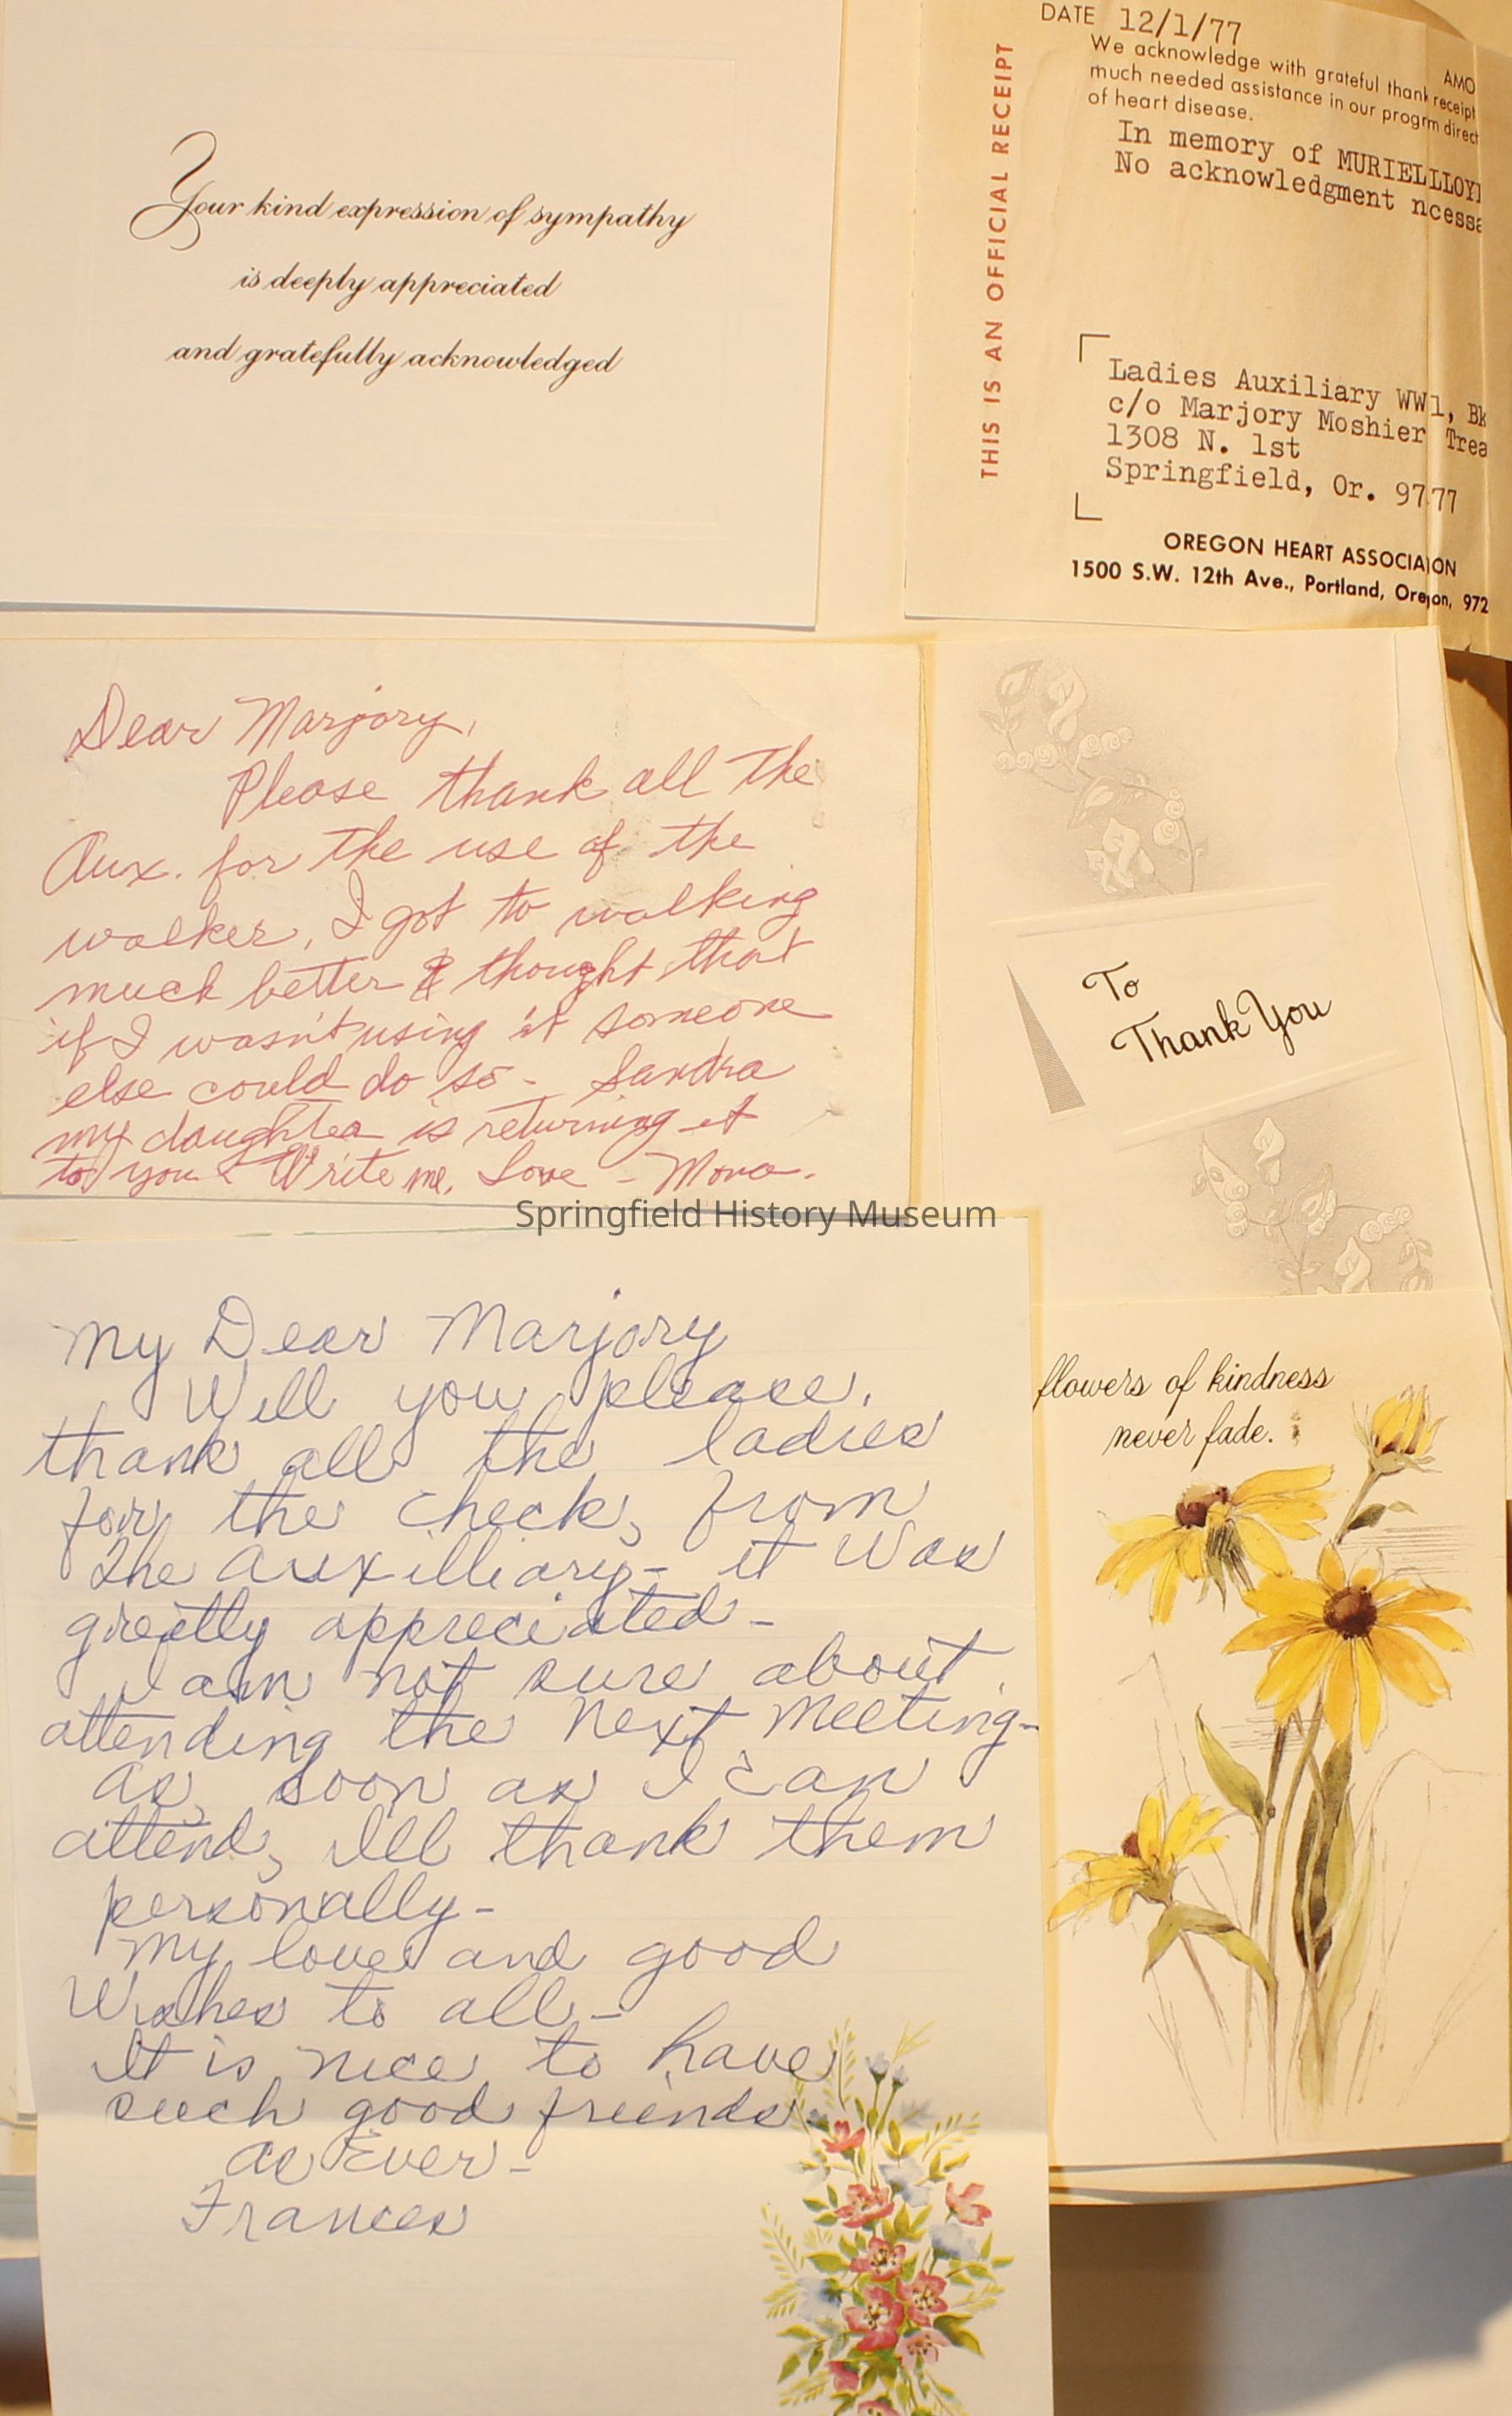 Your kind expression of sympathy
is deeply appreciated
and gratefully acknowledged
THIS IS AN OFFICIAL RECEIPT
DATE 12/1/77
AMO
We acknowledge with grateful thank receipt
much needed assistance in our progrm direct
of heart disease.
In memory of MURIELLLOY
No acknowledgment ncessa
Ladies Auxiliary WW1, Bk
c/o Marjory Moshier Trea
1308 N. 1st
Springfield, Or. 9777
OREGON HEART ASSOCIAION
1500 S.W. 12th Ave., Portland, Oregon, 972
Dear Marjory,
Please thank all the
Aux. for the use of the
walker, I got to walking
much better & thought that
if I wasn't using it someone
else could do so - Sandra
my daughter is returning it
to you - Write me. Love - Mona.
To
Thank You
Springfield History Museum
My Dear Marjory
Will you please,
thank all the ladies
for the check, from
the Auxilliary - it was
greatly appreciated -
I am not sure about
attending the next meeting -
as soon as I can
attend, Ill thank them
personally -
My love and good
Wishes to all -
It is nice to have
such good friends
As Ever -
Frances
flowers of kindness
never fade.